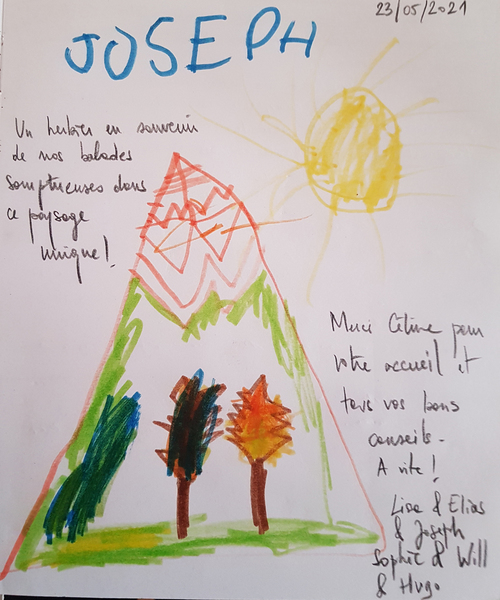 23/05/2021
JOSEPH
Un herbier en souvenir
de nos balades
somptueuses dans
ce paysage
unique !
Merci Céline pour
votre accueil et
tous vos bons
conseils -
A vite !
Lise & Elias
& Joseph
Sophie & Will
& Hugo